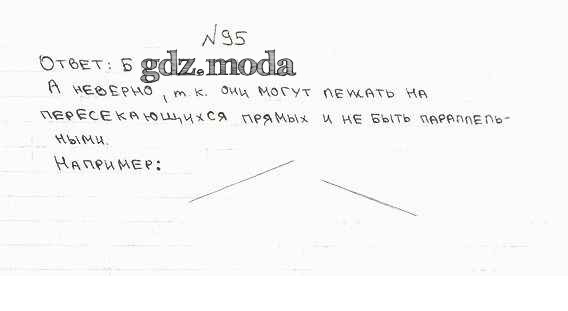 №95
Ответ: Б gdz.moda
А неверно, т.к. они могут лежать на
пересекающихся прямых и не быть параллель-
ными.
Например: